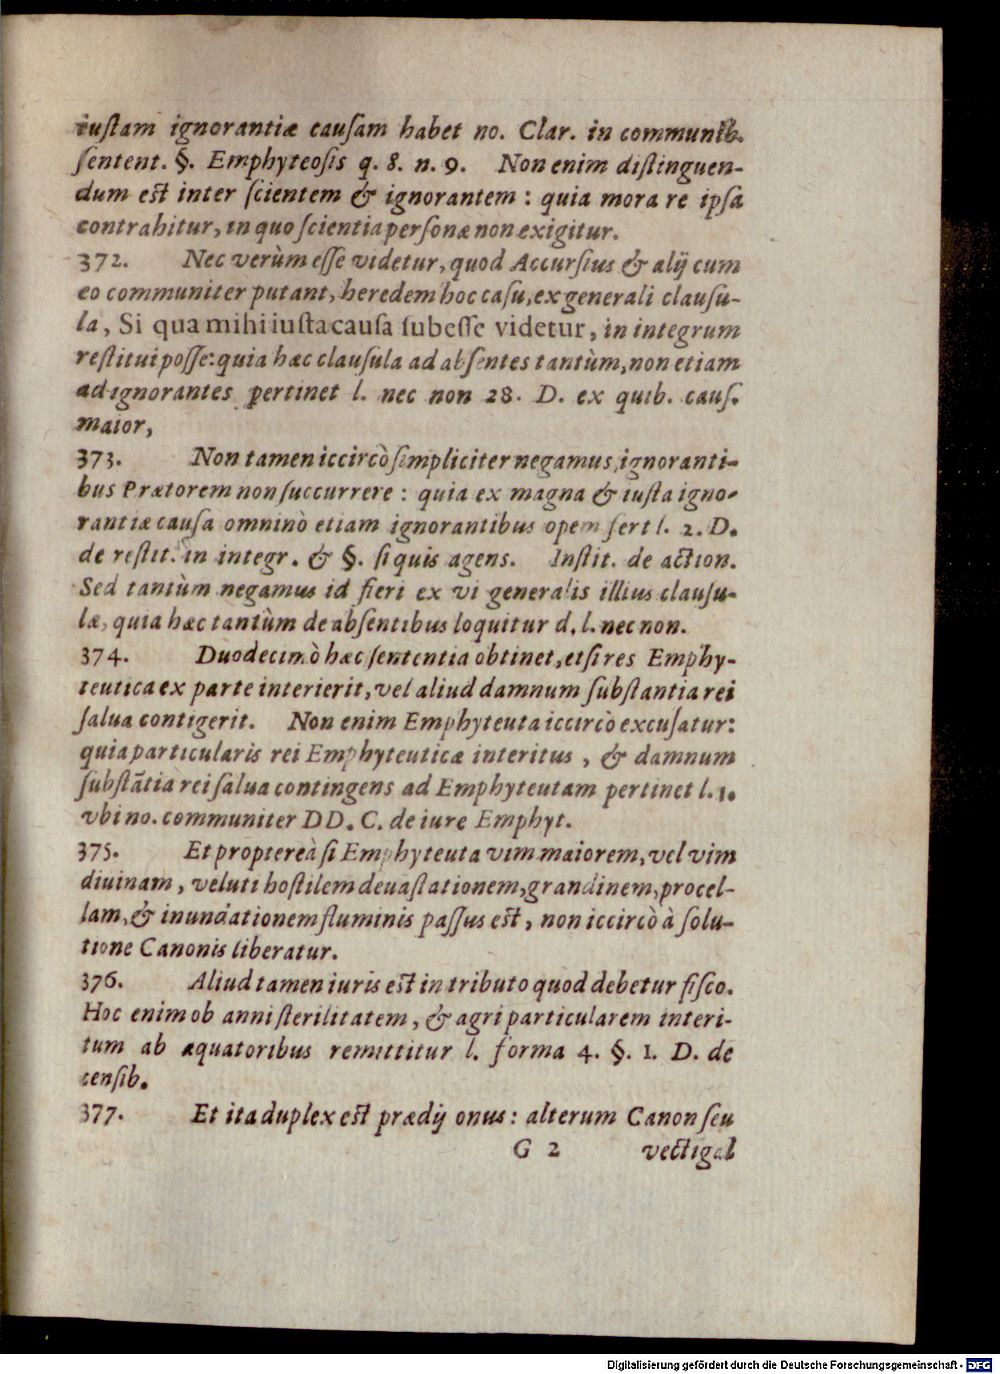 iustam ignorantiæ causam habet no. Clar. in communib.
sentent. §. Emphyteosis q. 8. n. 9. Non enim distinguen-
dum est inter scientem & ignorantem : quia mora re ipsa
contrahitur, in quo scientia personæ non exigitur.
372. Nec verùm esse videtur, quod Accursius & alij cum
eo communiter putant, heredem hoc casu, ex generali clausu-
la, Si qua mihi iusta causa subesse videtur, in integrum
restitui posse: quia hæc clausula ad absentes tantùm, non etiam
ad ignorantes pertinet l. nec non 28. D. ex quib. caus.
maior,
373. Non tamen iccircò simpliciter negamus, ignoranti-
bus Prætorem non succurrere : quia ex magna & iusta igno-
rantiæ causa omninò etiam ignorantibus opem fert l. 2. D.
de restit. in integr. & §. si quis agens. Instit. de action.
Sed tantùm negamus id fieri ex vi generalis illius clausu-
læ, quia hæc tantùm de absentibus loquitur d. l. nec non.
374. Duodecimò hæc sententia obtinet, etsi res Emphy-
teutica ex parte interierit, vel aliud damnum substantia rei
salua contigerit. Non enim Emphyteuta iccircò excusatur:
quia particularis rei Emphyteuticæ interitus, & damnum
substãtia rei salua contingens ad Emphyteutam pertinet l. 1.
vbi no. communiter DD. C. de iure Emphyt.
375. Et proptereà si Emphyteuta vim maiorem, vel vim
diuinam, veluti hostilem deuastationem, grandinem, procel-
lam, & inundationem fluminis passus est, non iccircò à solu-
tione Canonis liberatur.
376. Aliud tamen iuris est in tributo quod debetur fisco.
Hoc enim ob anni sterilitatem, & agri particularem interi-
tum ab æquatoribus remittitur l. forma 4. §. 1. D. de
censib.
377. Et ita duplex est prædij onus : alterum Canon seu
G 2 vectigal
Digitalisierung gefördert durch die Deutsche Forschungsgemeinschaft - DFG